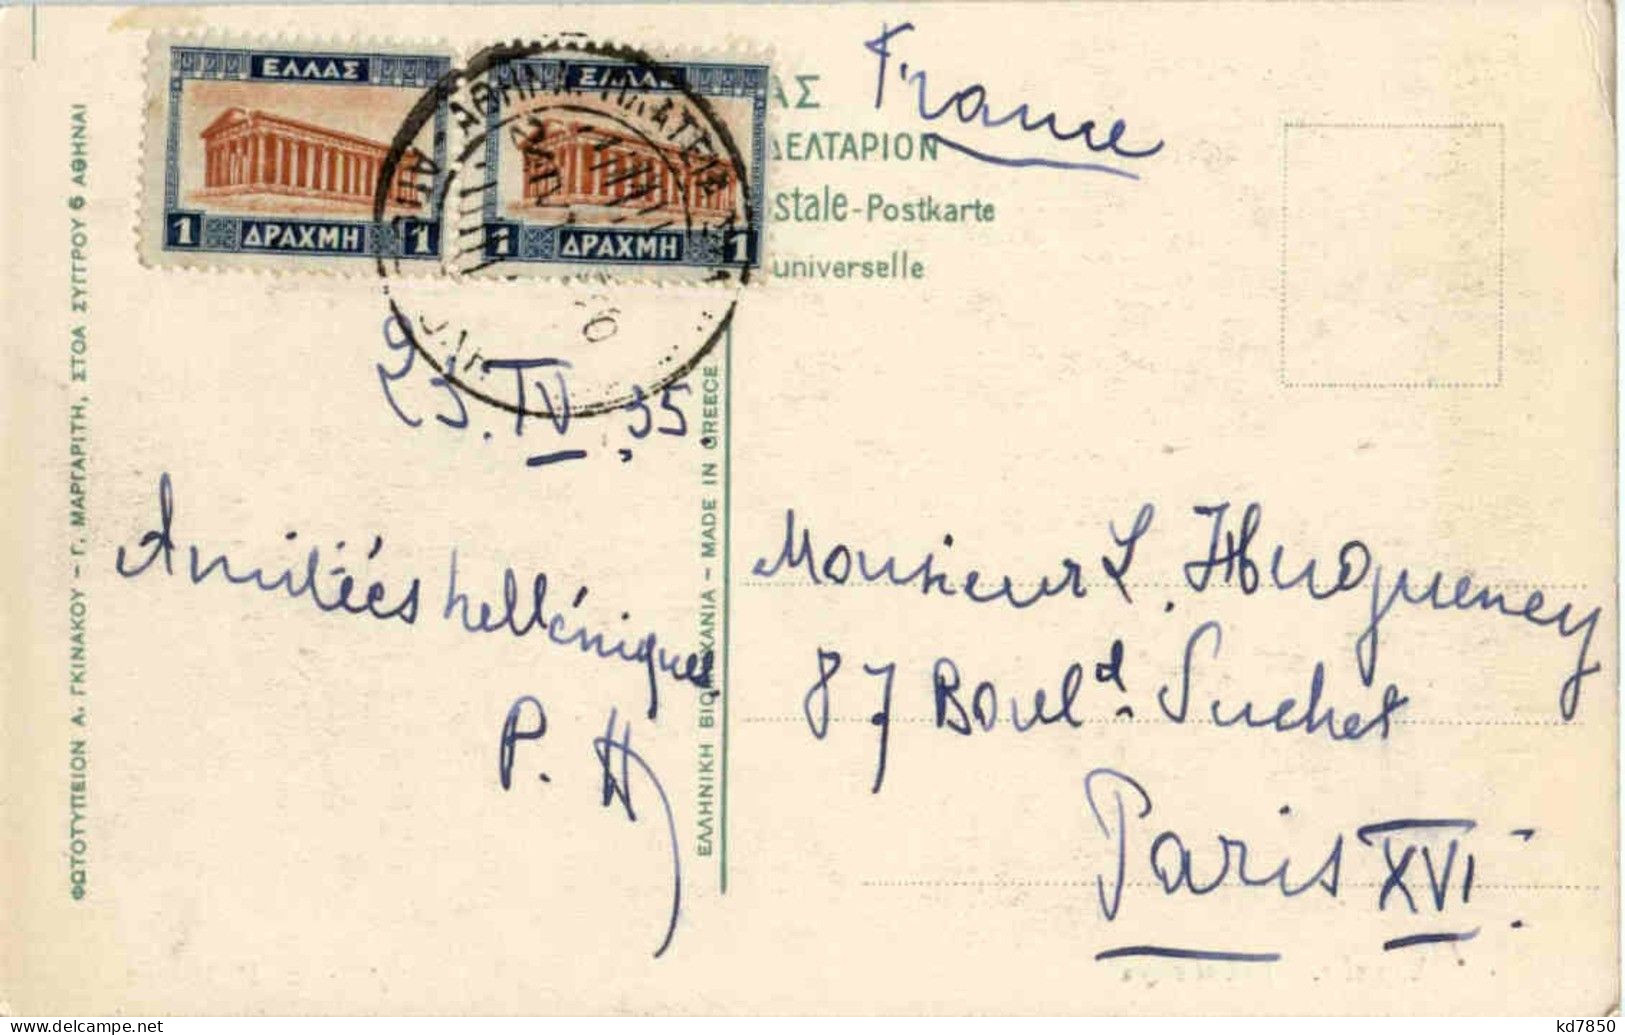 France
ΕΛΛΑΣ
1 ΔΡΑΧΜΗ 1
ΕΛΛΑΣ
1 ΔΡΑΧΜΗ 1
ΑΣ
ΔΕΛΤΑΡΙΟΝ
stale-Postkarte
universelle
23.IV.35.
Amitiées helléniques
P. H
Monsieur L. Hugueney
87 Boulᵈ. Suchet
Paris XVI.
ΦΩΤΟΤΥΠΕΙΟΝ Α. ΓΚΙΝΑΚΟΥ – Γ. ΜΑΡΓΑΡΙΤΗ, ΣΤΟΑ ΣΥΓΓΡΟΥ 6 ΑΘΗΝΑΙ
ΕΛΛΗΝΙΚΗ ΒΙΟΜΗΧΑΝΙΑ – MADE IN GREECE
kd7850